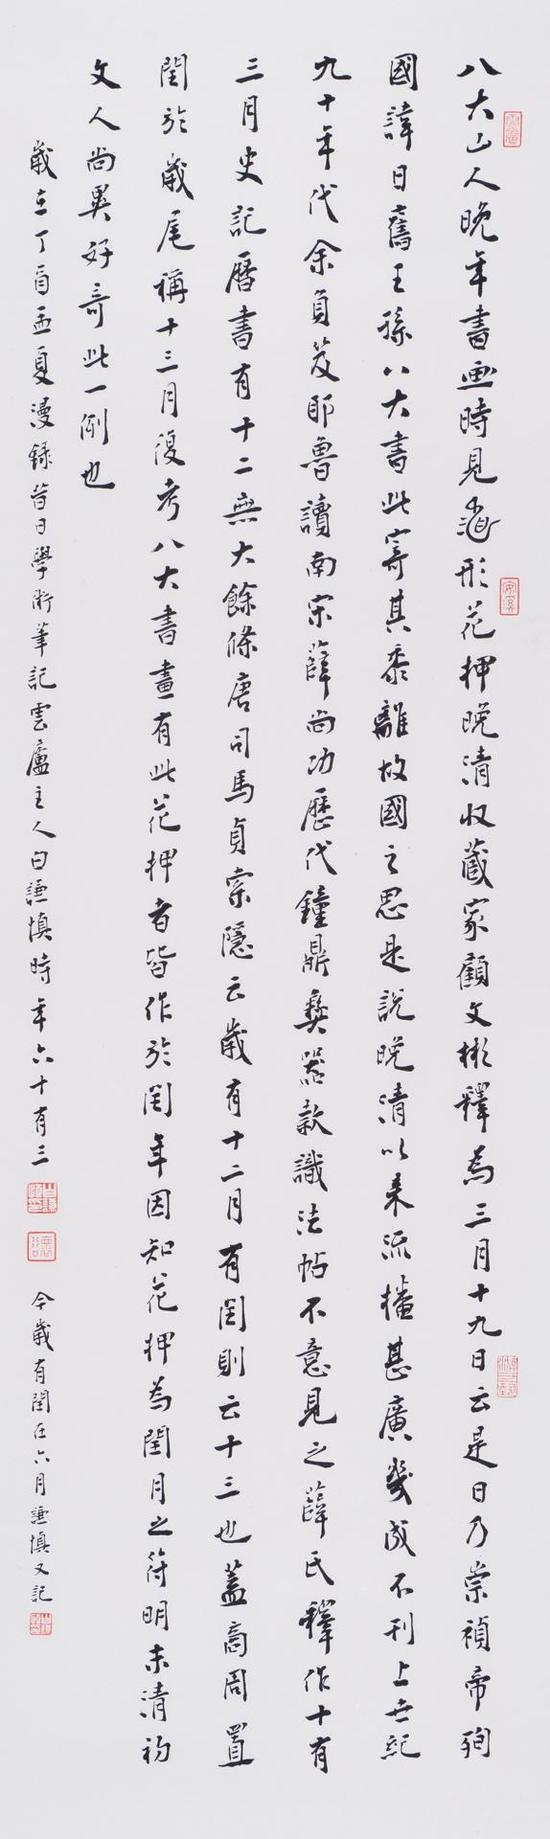 八大山人晚年書画時見形花押晚清收藏家顧文彬釋為三月十九日云是日乃崇禎帝殉
國諱日舊王孫八大書此寄其黍離故國之思是說晚清以来流播甚廣幾成不刊上世紀
九十年代余負笈耶魯讀南宋薛尚功歷代鐘鼎彝器款識法帖不意見之薛氏釋作十有
三月史記曆書有十二無大餘條唐司馬貞索隱云歲有十二月有閏則云十三也蓋商周置
閏於歲尾稱十三月復考八大書畫有此花押者皆作於閏年因知花押為閏月之符明末清初
文人尚異好奇此一例也
歲在丁酉孟夏漫錄昔日學術筆記雲廬主人白謙慎時年六十有三
今歲有閏在六月謙慎又記